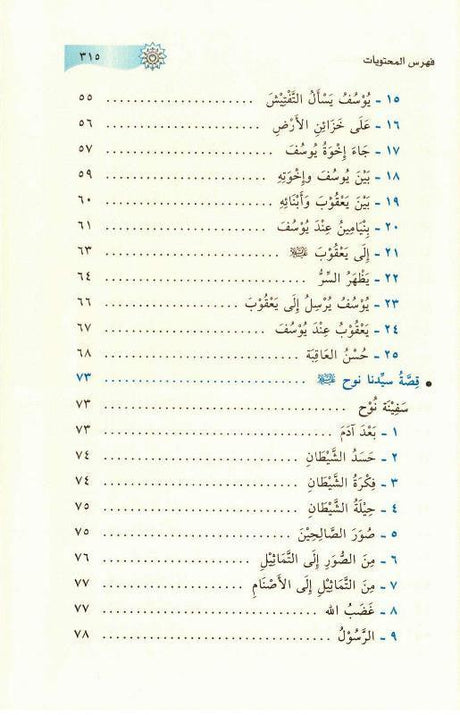 فهرس المحتويات ٣١٥
١٥ - يُوْسُفُ يَسْأَلُ التَّفْتِيْشَ ........................ ٥٥
١٦ - عَلَى خَزَائِنِ الأَرْضِ ........................ ٥٦
١٧ - جَاءَ إِخْوَةُ يُوسُفَ ........................ ٥٧
١٨ - بَيْنَ يُوسُفَ وإِخْوَتِهِ ........................ ٥٩
١٩ - بَيْنَ يَعْقُوْبَ وَأَبْنَائِهِ ........................ ٦٠
٢٠ - بِنْيَامِينُ عِنْدَ يُوْسُفَ ........................ ٦١
٢١ - إِلَى يَعْقُوْبَ ﷺ ........................ ٦٣
٢٢ - يَظْهَرُ السِّرُّ ........................ ٦٤
٢٣ - يُوْسُفُ يُرْسِلُ إِلَى يَعْقُوْبَ ........................ ٦٦
٢٤ - يَعْقُوْبُ عِنْدَ يُوْسُفَ ........................ ٦٧
٢٥ - حُسْنُ العَاقِبَة ........................ ٦٨
• قِصَّةُ سيِّدنا نوح ........................ ٧٣
سَفِيْنَة نُوْح ........................ ٧٣
١ - بَعْدَ آدَمَ ........................ ٧٣
٢ - حَسَدُ الشَّيْطَانِ ........................ ٧٤
٣ - فِكْرَةُ الشَّيْطَانِ ........................ ٧٤
٤ - حِيْلَةُ الشَّيْطَانِ ........................ ٧٥
٥ - صُوَرُ الصَّالِحِيْنَ ........................ ٧٥
٦ - مِنَ الصُّوَرِ إِلَى التَّمَاثِيْلِ ........................ ٧٦
٧ - مِنَ التَّمَاثِيْلِ إِلَى الأَصْنَامِ ........................ ٧٧
٨ - غَضَبُ الله ........................ ٧٧
٩ - الرَّسُوْلُ ........................ ٧٨